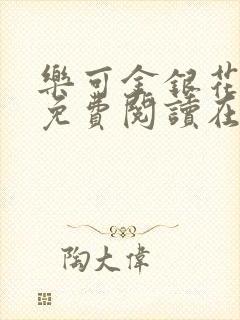 樂可金銀花
免費閱讀在
陶大偉